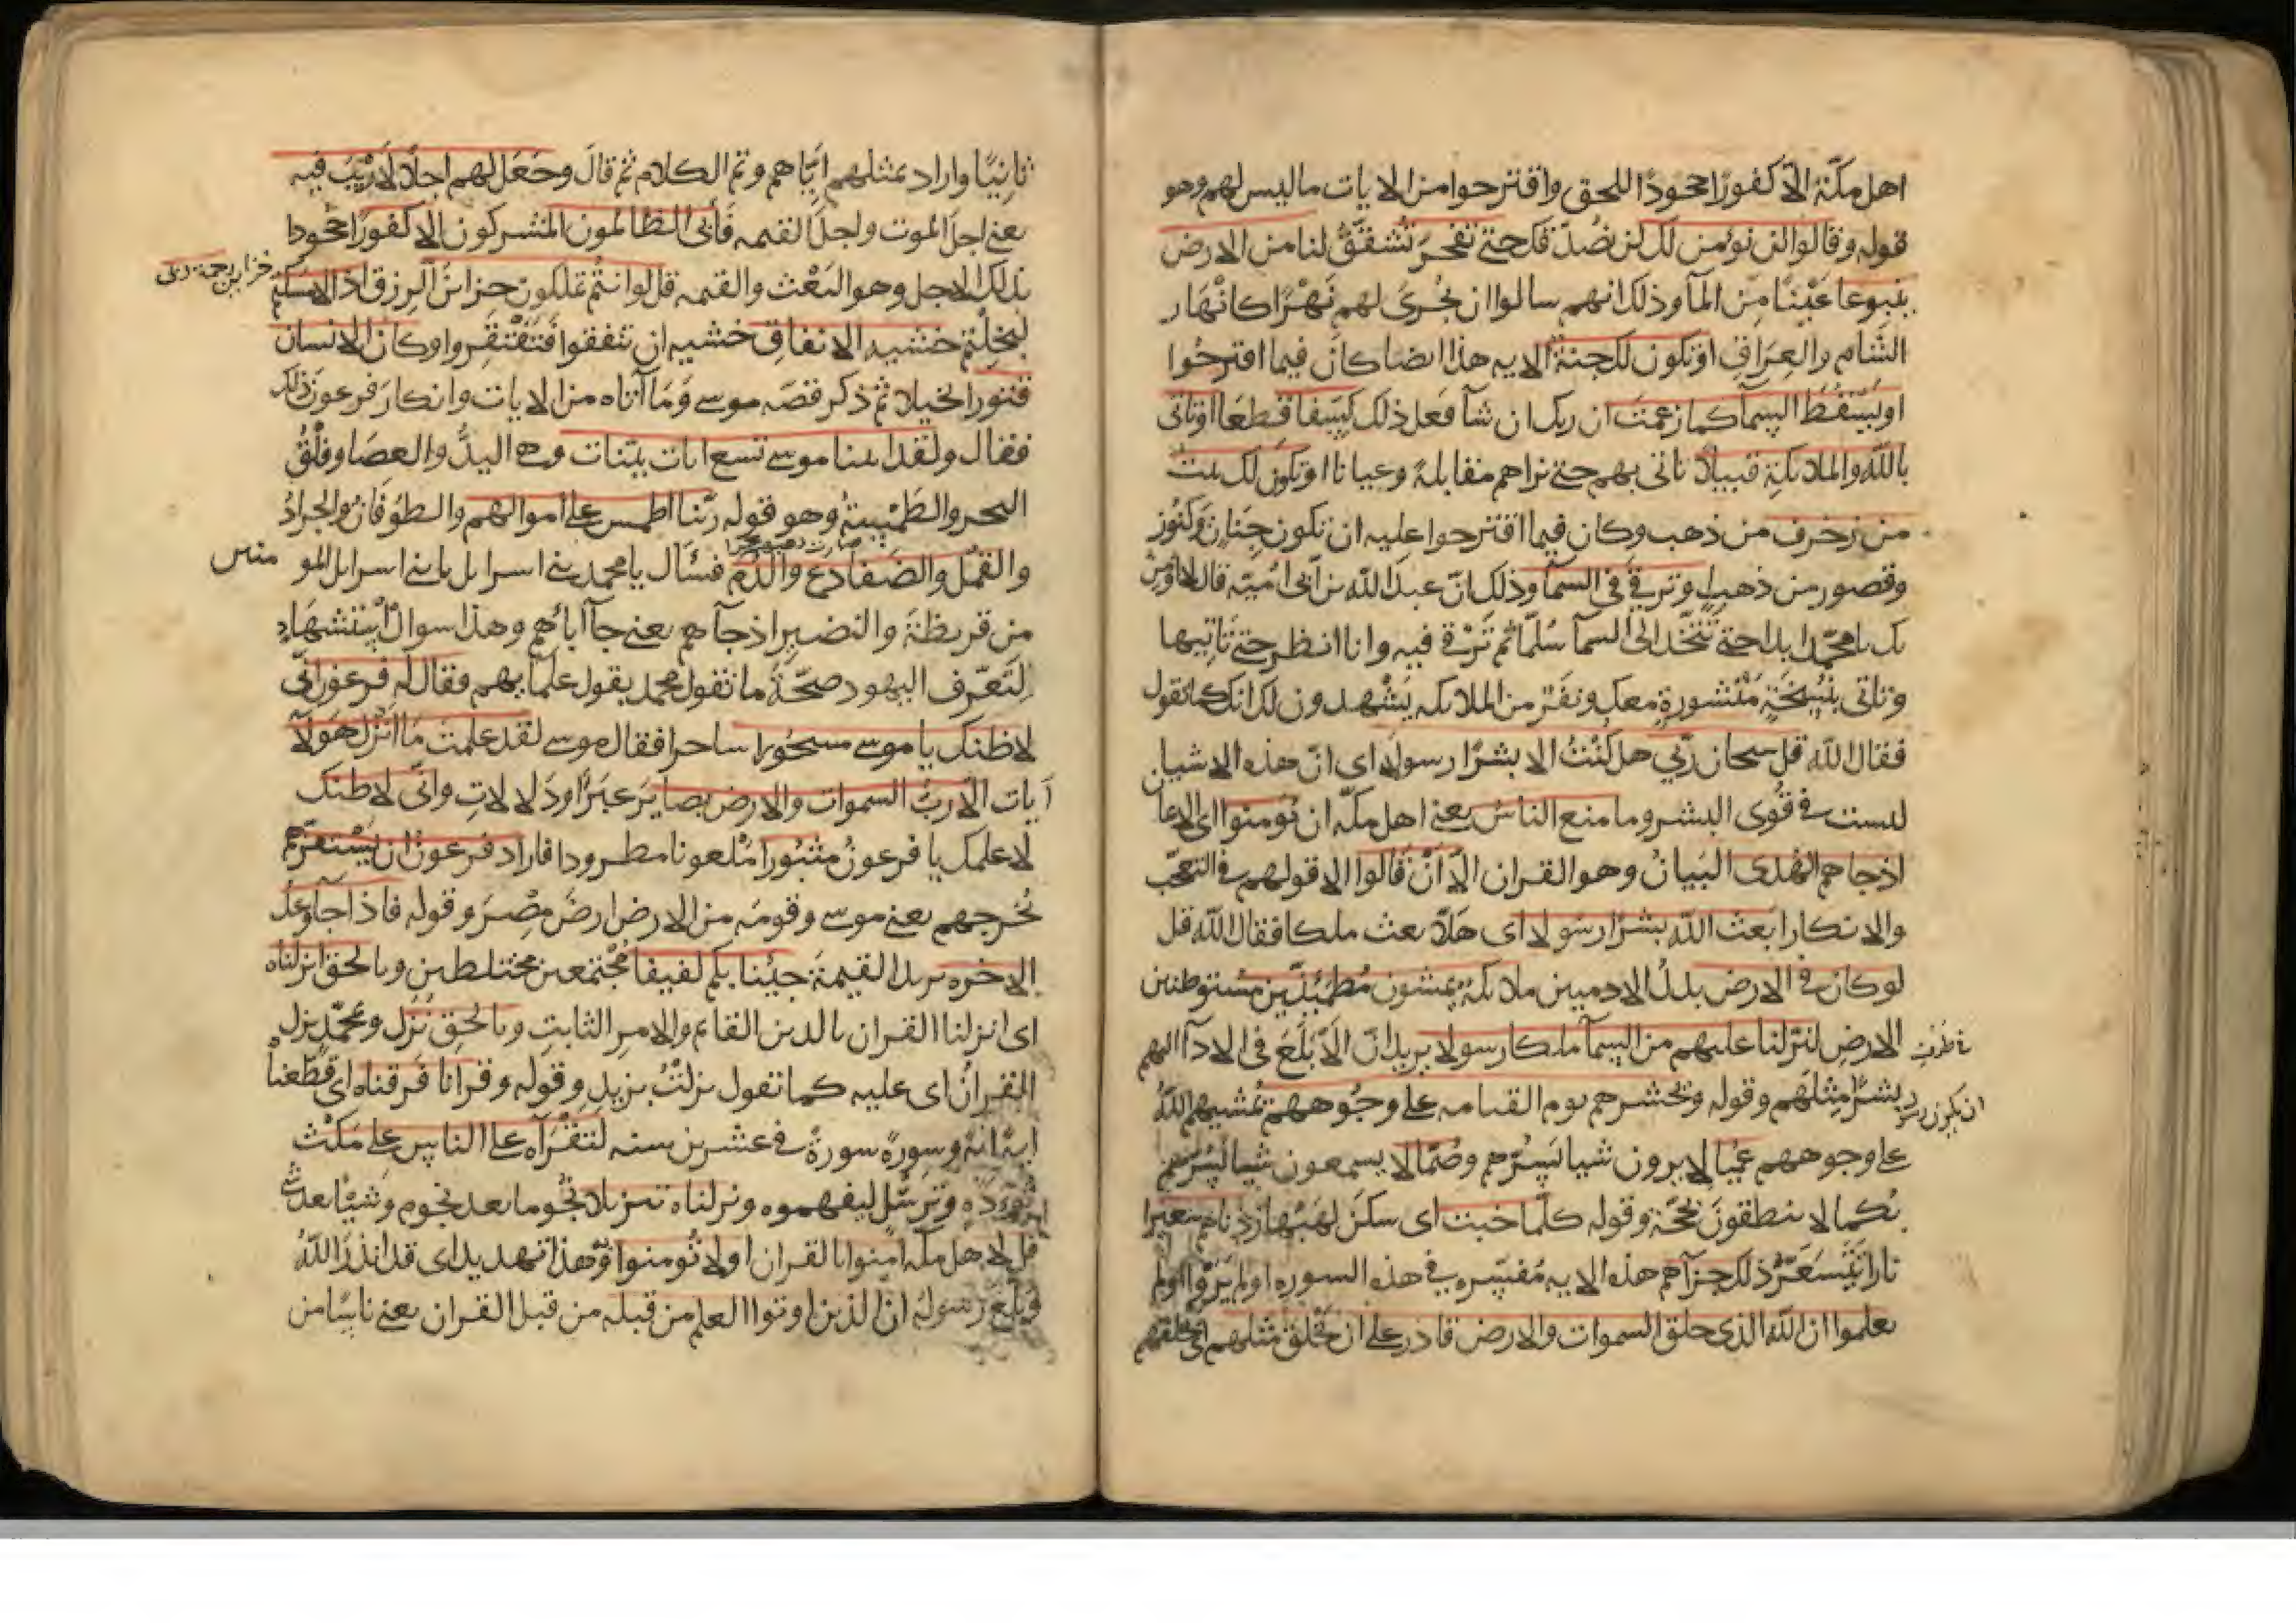 اهل مكّة الّا كفورًا جحودًا للحق واقترحوا من الايات ما ليس لهم وهو
قوله وقالوا لن نؤمن لك لن نصدّقك حتي تفجر تشقّق لنا من الارض
ينبوعا عينًا من المآ وذلك انهم سالوا ان يُجرى لهم نهْرًا كانهار
الشام والعراق او تكون لك جنة الايه هذا ايضا كان فيما اقترحوا
او تسقط السمآ كما زعمت ان ربك ان شآ فعل ذلك كسفا قطعا او تاتى
بالله والملائكة قبيلا تاتى بهم حتي نراهم مقابلة وعيانا او تكون لك بيت
من زخرف من ذهب وكان فيما اقترحوا عليه ان تكون جنان وكنوز
وقصور من ذهب او ترقي في السمآ وذلك انّ عبد الله بن ابى اميّة قال لا اومن
بك يا محمد ابدا حتي تتخذ الى السمآ سُلّما ثم ترقى فيه وانا انظر حتي تاتيها
وتاتى بنسخةٍ منشورةٍ معك ونفر من الملائكه يشهدون لك انك كما تقول
فقال الله قل سبحان ربّي هل كنتُ الا بشرًا رسولا اى انّ هذه الاشيا
ليست في قُوى البشر وما منع الناس يعنى اهل مكّه ان يومنوا اى الايمان
اذ جاهم الهدى البيانُ وهو القران الّا أنْ قالوا الا قولهم في التعجّب
والانكار ابعث الله بشرًا رسولا اى هلّا بعث ملكا فقال الله قل
لو كان في الارض بدلَ الادميين ملائكة يمشون مطمئنّين مستوطنين
الارض لنزّلنا عليهم من السمآ ملكا رسولا يريد انّ الابلغ في الادآ اليهم
بشرٌ مثلهم وقوله ونحشرهم يوم القيامه على وجوههم يمشيهم اللهُ
على وجوههم عميا لا يرون شيا يسرّهم وصُمّا لا يسمعون شيا يسرّهم
بكما لا ينطقون بحجّة وقوله كلّما خبت اى سكن لهبُها زدناهم سعيرا
نارا تتسعّر ذلك جزآهم هذه الايه مفسّره في هذه السوره اولم يروا اولم
يعلموا ان الله الذى خلق السموات والارض قادر على ان يخلق مثلهم اى يخلقهم
ثانيًا واراد بمثلهم ايّاهم وتم الكلام ثم قال وجعل لهم اجلًا لا ريب فيه
يعني اجل الموت واجل القيمه فأبى الظالمون المشركون الا كفورًا جحودا
بذلك الاجل وهو البعث والقيمه قل لو انتم تملكون خزائن الرزق اذا لامسكتم
خزاين رحمة ربى
لبخلتم خشية الانفاق خشيه ان تنفقوا فتفتقروا وكان الانسان
قتورا بخيلا ثم ذكر قصّه موسي وما آتاه من الايات وانكار فرعون ذلك
فقال ولقد اتينا موسي تسع ايات بينات وهي اليدُ والعصا وفلْقُ
البحر والطمسة وهو قوله ربنا اطمس على اموالهم والطوفانُ والجرادُ
والقمّل والضفادع والدم فسئال يا محمد بنى اسرايل يا بنى اسرايل المو منين
من قريظة والنضير اذ جآهم يعني جآ ابائهم وهذا سوال استشهاد
لتعرّف اليهود صحّة ما تقول محمد بقول علمآيهم فقال له فرعون انّى
لاظنك يا موسي مسحورا ساحرا فقال موسي لقد علمت ما انزل هولآ
آيات الا ربُّ السموات والارض بصاير عبرًا ودلالات وانّى لاظنك
لاعلمك يا فرعونُ مثبورا ملعونا مطرودا فاراد فرعون ان يستفزّهم
نخرجهم يعني موسي وقومه من الارض ارض مصر وقوله فاذا جآ وعدُ
الاخره يريد القيمة جينا بكم لفيفا مجتمعين مختلطين وبالحق انزلناه
اى انزلنا القران بالدين القائم والامر الثابت وبالحق نزل وبمحمّد نزل
القرانُ اى عليه كما تقول نزلتُ بزيد وقوله وقرانا فرقناه اى قطّعناه
اية اية وسورة سورة في عشرين سنه لتقرآه على الناس على مكث
تُؤَدةٍ وترسّل ليفهموه ونزلناه تنزيلا نجوما بعد نجوم وشيئا بعد شي
قل لاهل مكه امنوا بالقران او لا تومنوا به وهذا تهديد اى قد انذر اللهُ
وبلّغ رسوله انّ الذين اوتوا العلم من قبله من قبل القران يعني ناسًا من